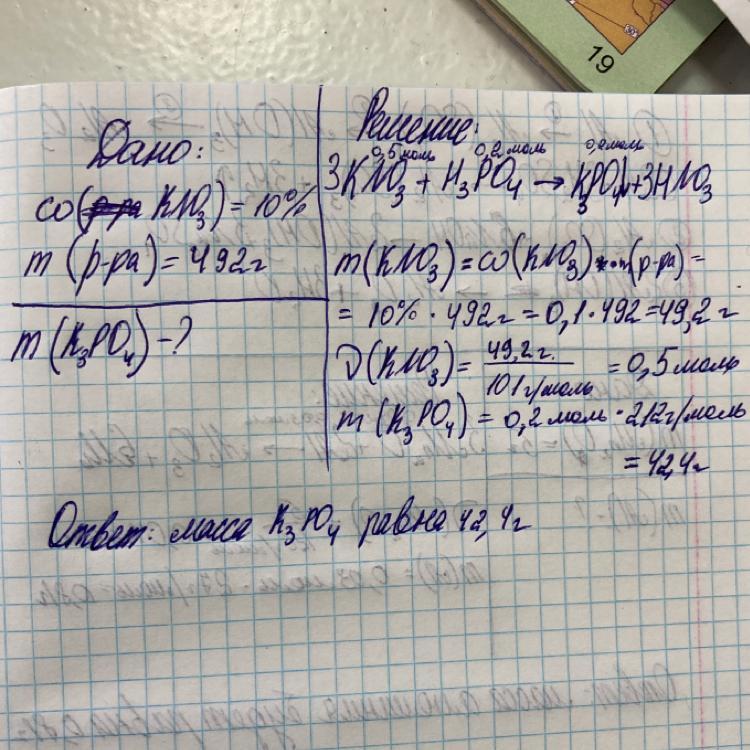 19
Дано:
ω(KNO₃) = 10%
m(р-ра) = 492г
m(K₃PO₄) - ?
Решение:
0,5 моль 0,2 моль 0,2 моль
3KNO₃ + H₃PO₄ → K₃PO₄ + 3HNO₃
m(KNO₃) = ω(KNO₃) · m(р-ра) =
= 10% · 492г = 0,1 · 492 = 49,2 г
ν(KNO₃) = 49,2г. / 101г/моль = 0,5 моль
m(K₃PO₄) = 0,2 моль · 212г/моль
= 42,4г
Ответ: масса K₃PO₄ равна 42,4г